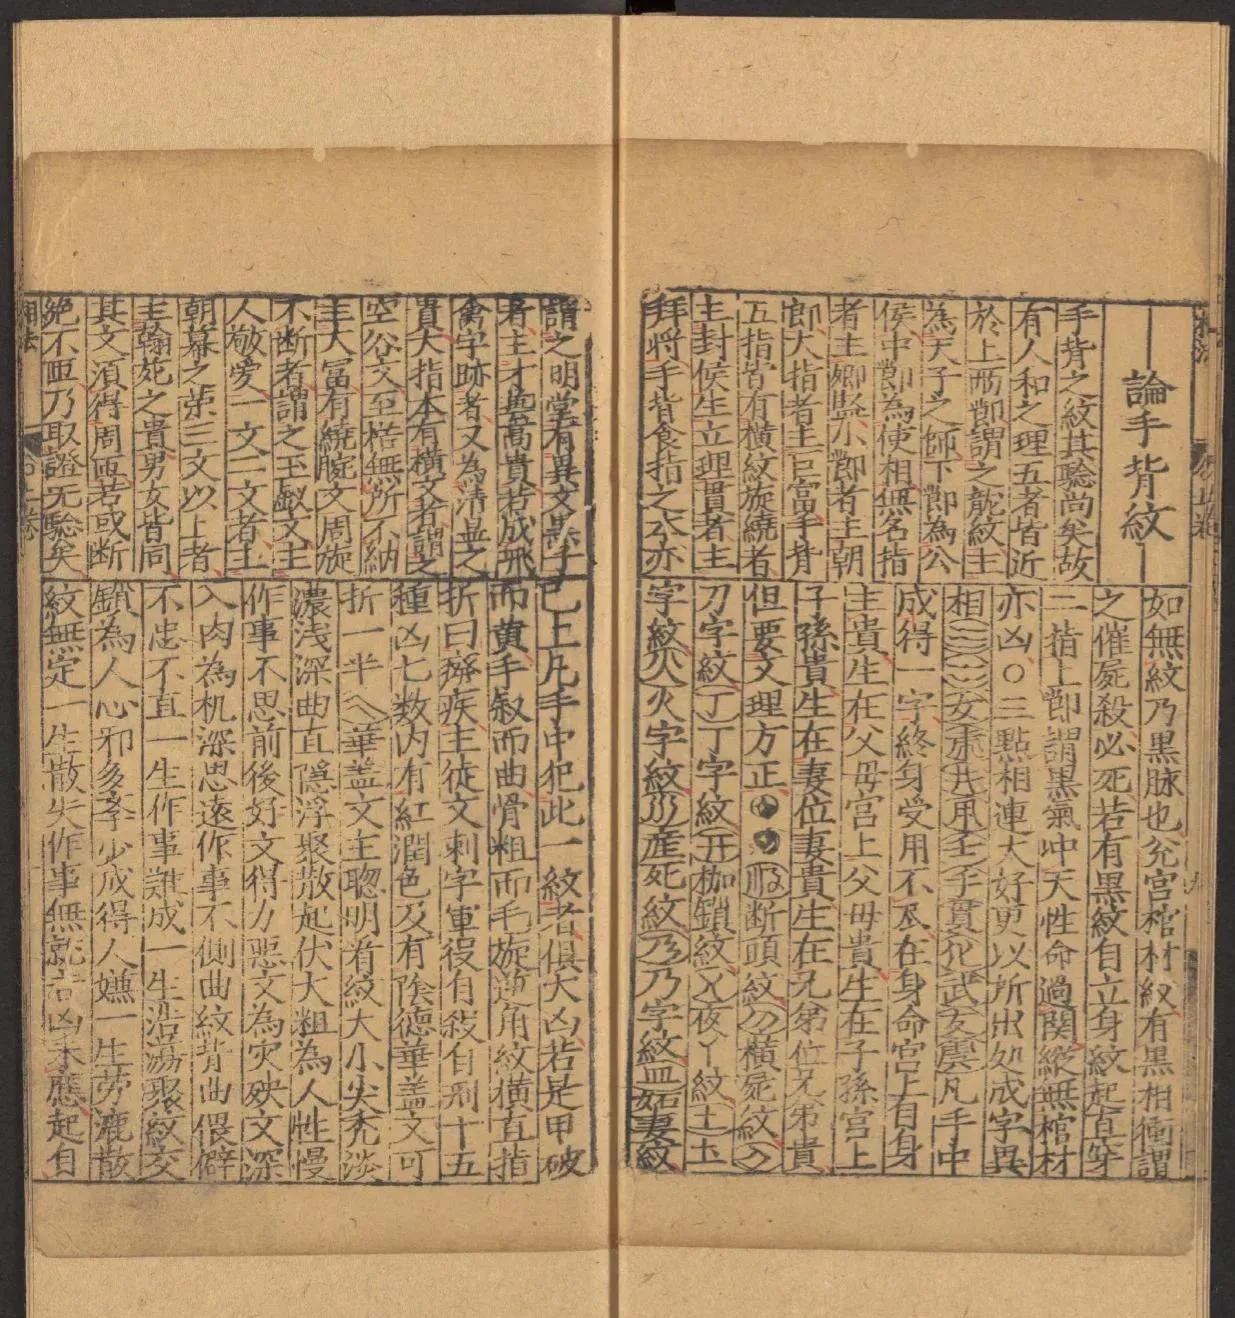 論手背紋
手背之紋其驗尚矣故
有人和之理五者皆近
於上兩節謂之龍紋主
為天子之師下節為公
侯中節為使相無名指
者主卿監小節者主朝
郎大指者主巨富手背
五指皆有橫紋旋繞者
主封侯生立理貫者主
拜將手背食指之本亦
謂之明堂有異文黑子
者主才藝高貴若成飛
禽字跡者又為清显之
貴大指本有橫文者謂之
空谷文至楛無所不納
主大冨有繞腕文周旋
不断者謂之玉釵文主
人敬爱一文二文者主
朝幕之荣三文以上者
主翰死之貴男女皆同
其文湏得周匝若或断
絶不匝乃取證无驗矣
如無紋乃黒脉也兊宫棺材紋有黒相衝謂
之催屍殺必死若有黒紋自立身紋起直穿
二指上節謂黒氣冲天性命過関縱無棺材
亦凶○三點相連大好更以所出处成字異
相 凡手中
成得一字終身受用不 在身命宫上自身
主貴生在父母宫上父母貴生在子孫宫上
子孫貴生在妻位妻貴生在兄弟位兄弟貴
但要文理方正 断頭紋 橫屍紋
刀字紋丁丁字紋 枷鎖紋 夜丫紋土土
字紋火火字紋 産死紋乃乃字紋 妬妻紋
已上凡手中犯此一紋者俱大凶若是甲破
而黄手 而曲骨粗而毛旋逆角紋橫直指
折曰癈疾主徒文刺字軍役自殺自刑十五
種凶七数内有紅潤色及有陰德華盖文可
折一半 華盖文主聦明看紋大小尖秃淡
濃浅深曲直隱浮聚散起伏大粗為人性慢
作事不思前後好文得力惡文為灾殃文深
入肉為机深思遠作事不側曲紋背曲偎僻
不忠不直一生作事難成一生浩蕩聚紋交
鎖為人心邪多 少成得人嫌一生劳漉散
紋無定一生散失作事無就 凶未應起自